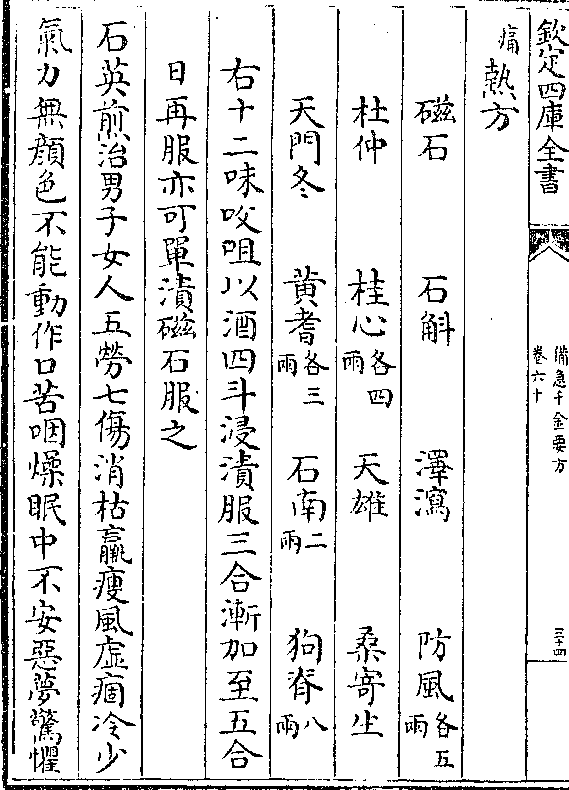 欽定四庫全書
備急千金要方
卷六十
三十四
痛熱方
磁石 石斛 澤瀉 防風各五兩
杜仲 桂心各四兩 天雄 桑寄生
天門冬 黄耆各三兩 石南二兩 狗脊八兩
右十二味㕮咀以酒四斗浸漬服三合漸加至五合
日再服亦可單漬磁石服之
石英煎治男子女人五勞七傷消枯羸瘦風虚痼冷少
氣力無顔色不能動作口苦咽燥眠中不安惡夢驚懼